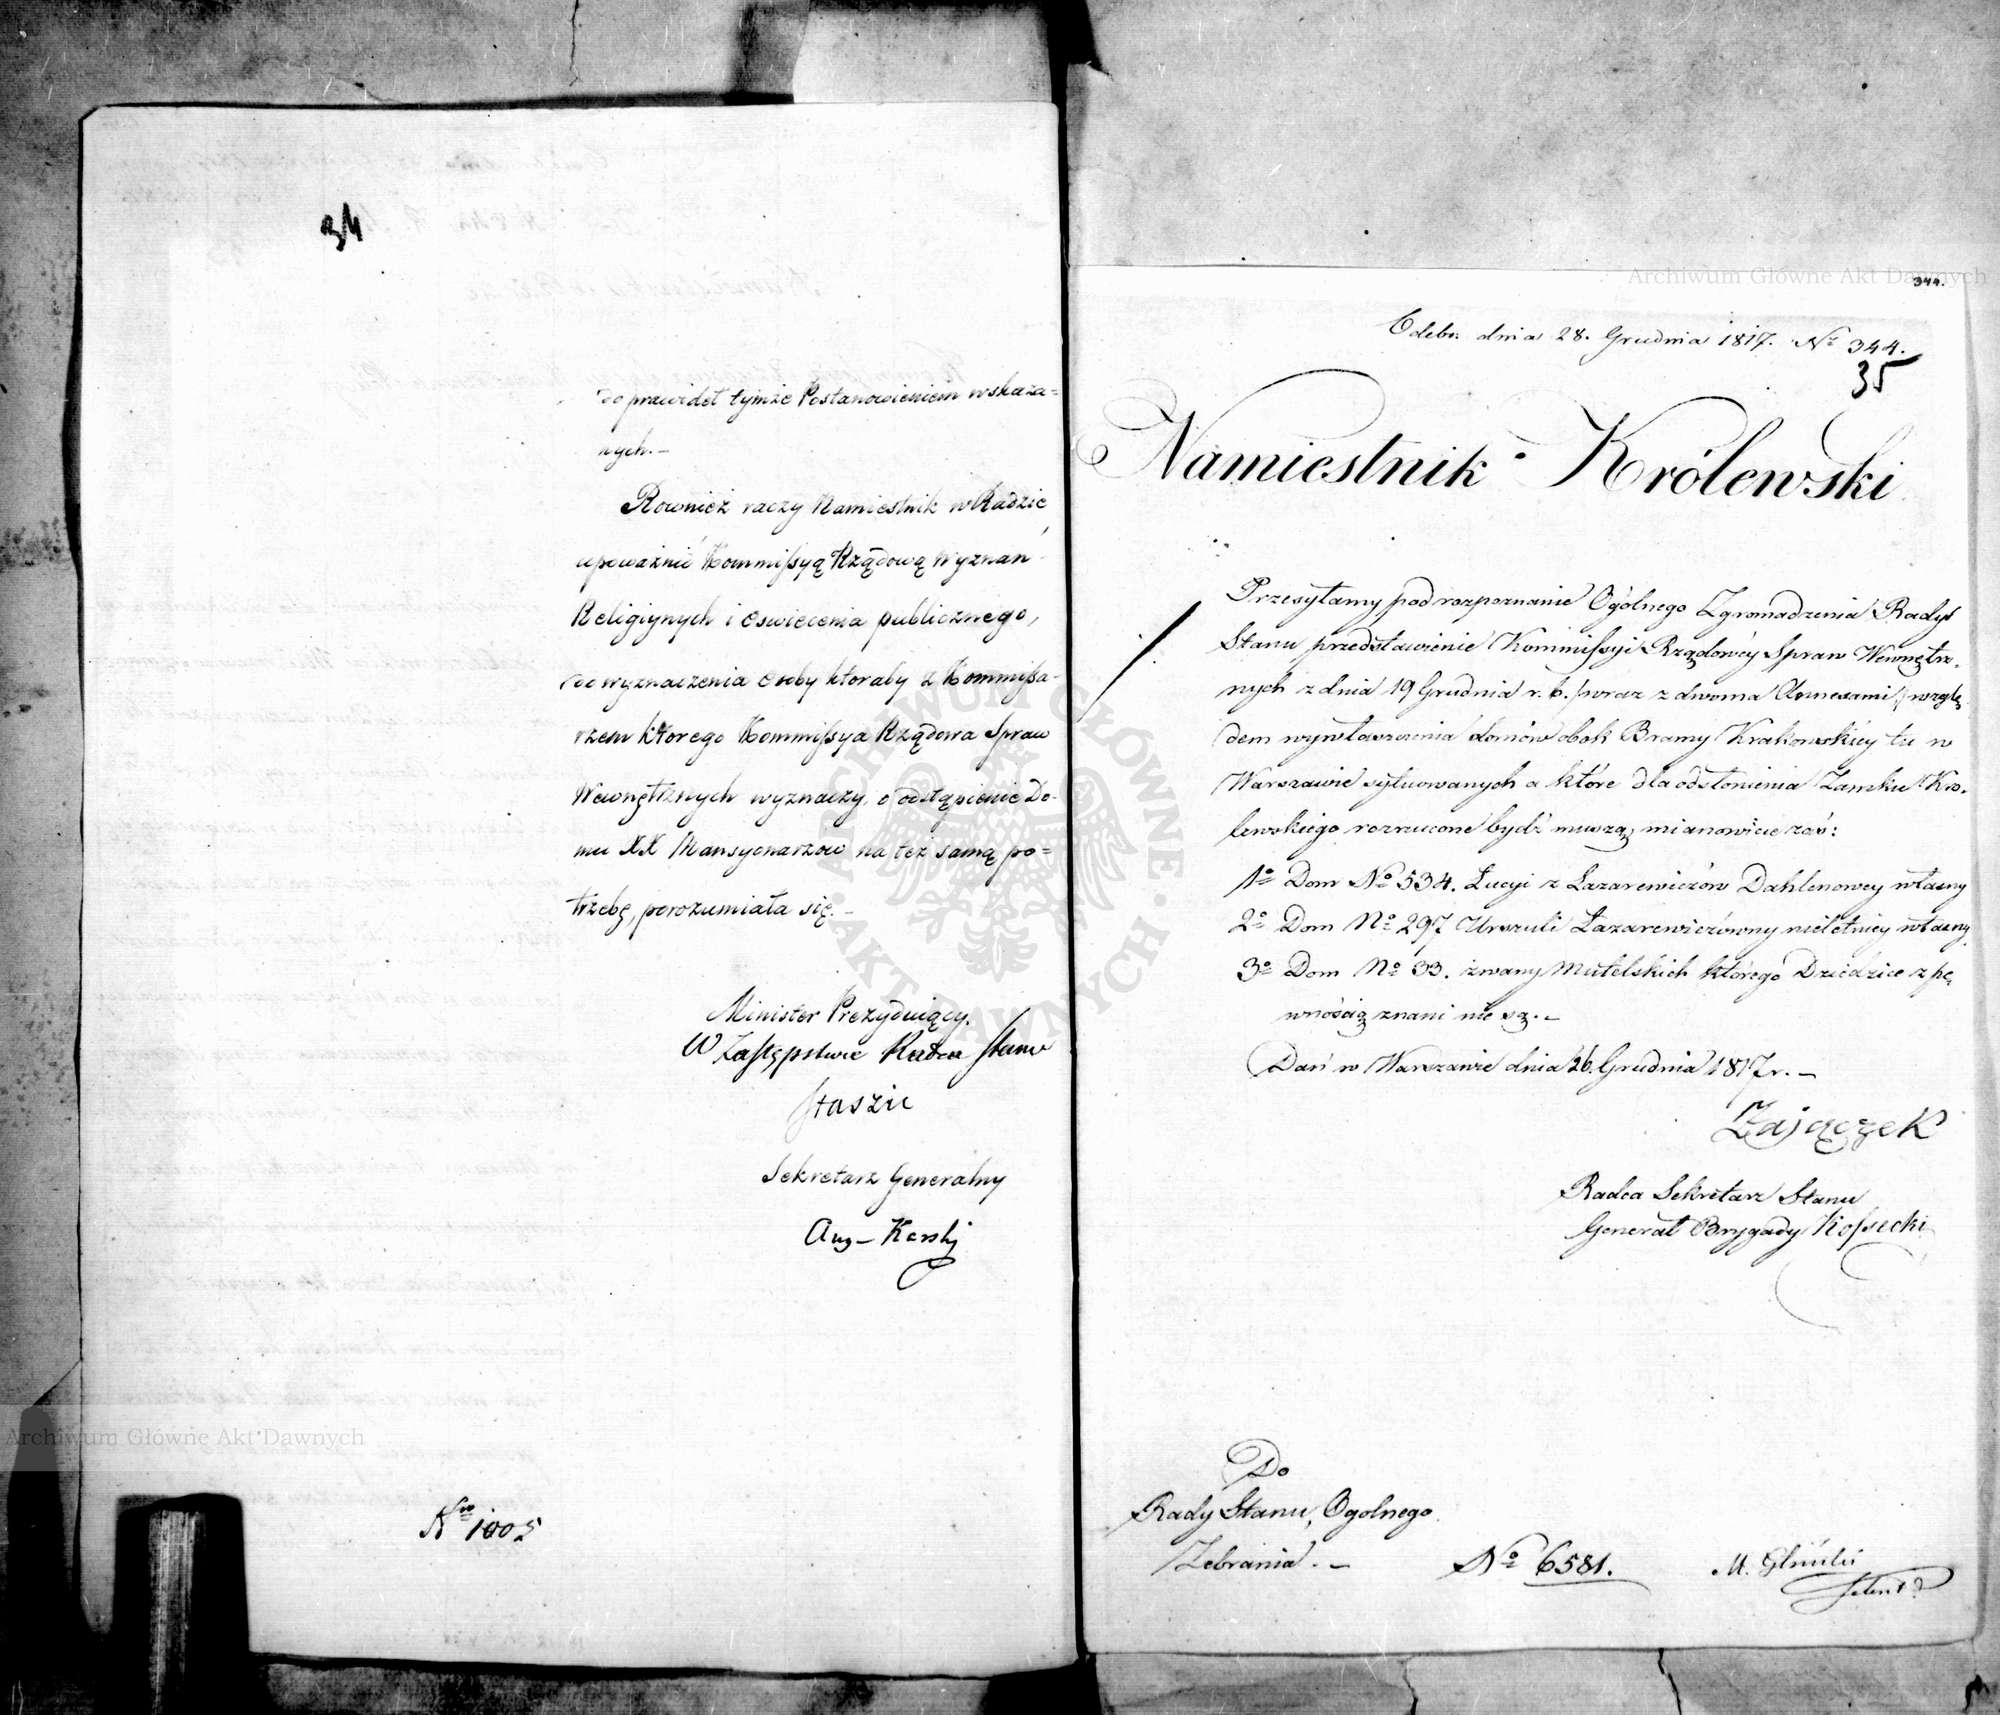 34
do prawideł tymże Postanowieniem wskaza=
nych.—
Rownież raczy Namiestnik w Radzie
upoważnić Kommissyą Rządową Wyznań
Religiynych i Oswiecenia publicznego,
do wyznaczenia osoby ktoraby z Kommissa-
rzem ktorego Kommissya Rządowa Spraw
Wewnętrznych wyznaczy, o odstąpienie Do-
mu XX Mansyonarzow na też samą po=
trzebę, porozumiała się.—
Minister Prezyduiący.
W Zastępstwie Radca Stanu
Staszic
Sekretarz Generalny
Aug— Karski
No 1005
Archiwum Główne Akt Dawnych
Archiwum Główne Akt Dawnych
344.
Odebr. dnia 28. Grudnia 1817. No 344.
35
Namiestnik Królewski
Przesyłamy pod rozpoznanie Ogólnego Zgromadzenia Rady
Stanu przedstawienie Kommissyi Rządowéy Spraw Wewnętrz-
nych z dnia 19 Grudnia r. b. /wraz z dwoma Annexami,/ wzglę-
dem wywłaszczenia domów obok Bramy Krakowskiéy tu w
Warszawie sytuowanych a które dla odsłonienia Zamku Kró-
lewskiego rozrzucone bydź muszą, mianowicie zaś:
1o Dom No 534. Lucyi z Lazarewiczów Dahlenowey własny
2o Dom No 297 Urszuli Lazarewiczówny nieletniey własny
3o Dom No 33. zwany Mutelskich którego Dziedzice z pe-
wnością znani nie są.—
Dań w Warszawie dnia 26. Grudnia 1817 r.—
Zajączek
Radca Sekretarz Stanu
Generał Brygady Kossecki
Do
Rady Stanu, Ogolnego
Zebrania.—
No 6581.
M. Gliński
ARCHIWUM GŁÓWNE • AKT DAWNYCH •